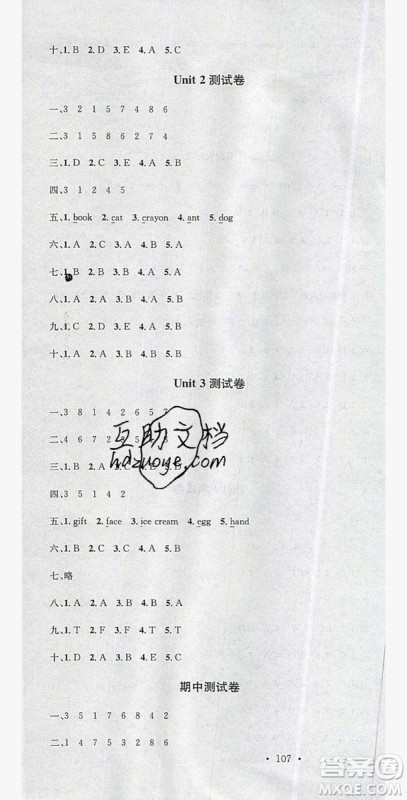 十、1. B 2. D 3. E 4. A 5. C
Unit 2 测试卷
一、3 2 1 5 7 4 8 6
二、3 1 5 8 6 2 7 4
三、1. D 2. E 3. C 4. A 5. B
四、3 1 2 4 5
五、1. book 2. cat 3. crayon 4. ant 5. dog
六、1. A 2. B 3. A 4. B 5. B
七、1. B 2. B 3. B 4. A 5. A
八、1. A 2. B 3. A 4. B 5. A
九、1. C 2. D 3. A 4. E 5. B
十、1. A 2. A 3. B 4. B 5. B
Unit 3 测试卷
一、3 8 1 4 2 6 5 7
二、4 6 7 2 8
三、1. B 2. C
四、3 5 1 4 2
五、1. gift 2. face 3. ice cream 4. egg 5. hand
六、1. B 2. A 3. A 4. B 5. B
七、略
八、1. B 2. A 3. B 4. A 5. A
九、1. T 2. F 3. T 4. T 5. F
十、1. E 2. C 3. D 4. B 5. A
期中测试卷
一、3 5 1 7 6 8 4 2
二、1 4 2 3 7 5 8 6
· 107 ·
互助文档
hdzuoye.com
答案圈
MXQE.COM